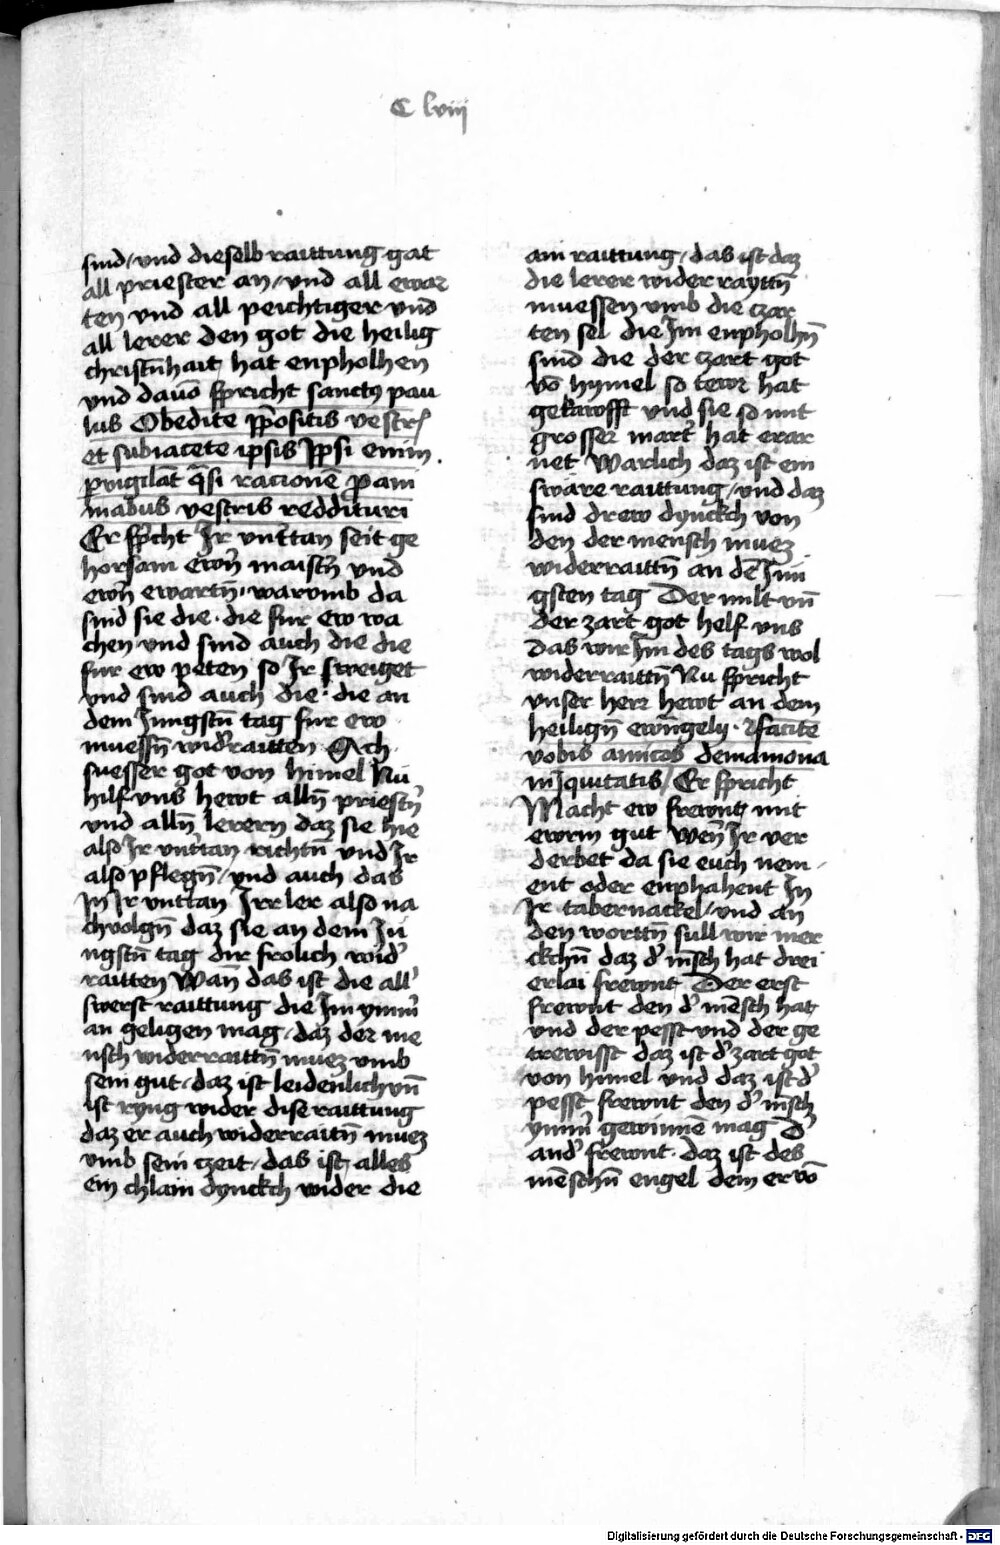 C lviij
sind / und dieselb raittung gat
all priester an / und all ewar
ten vnd all peichtiger vnd
all lerer den got die heilig
christn̄hait hat enpholhen
vnd dauō spricht sanctus pau
lus Obedite p̄positis vestris
et subiacete ipsis Ipsi enim
p̱vigilāt q̄si racionē p̱ ani
mabus vestris reddituri
Er sp̄cht Ir vnttan seit ge
horsam ewrn̄ maistn̄ vnd
ewrn̄ ewartn̄ · warumb da
sind sie die · die fur ew wa
chen vnd sind auch die die
fur ew peten so Ir sweiget
vnd sind auch die · die an
dem Jungstn̄ tag fur ew
muessn̄ widʼraitten Ach
suesser got von himel Nu
hilf vns hewt alln̄ priestn̄
vnd alln̄ lerern daz sie hie
also Ir vnttan richtn̄ vnd Ir
also pflegn̄ / vnd auch das
In Ir vnttan Irr ler also na
chvolgn̄ daz sie an dem Iu
ngstn̄ tag dir frolich widʼ
raitten Wan̄ das ist die allʼ
swerst raittung die Im ymm̄
an geligen mag / daz der me
nsch widerraittn̄ muez vmb
sein gut / daz ist leidenlich vn̄
ist ryng wider dise raittung
daz er auch widerraitn̄ muez
vmb sein czeit / das ist alles
ein chlain dynckch wider die
ain raittung / das ist daz
die lerer wider rayttn̄
muessen vmb die czar
ten sel die Im enpholhn̄
sind die der czart got
vō hymel so tewr hat
gekawfft vnd sie so mit
grosser martʼ hat erar
net Warlich daz ist ein
sware raittung / vnd daz
sind drew dynckch von
den der mensch muez
widerraittn̄ an dē Jun
gsten tag Der milt vn̄
der zart got helf vns
Das wir Im des tags wol
widerraittn̄ Nu spricht
vnser herr hewt an dem
heilign̄ ewn̄gelij · facite
vobis amicos de mamona
iniquitatis / Er spricht
Macht ew frewnt mit
ewrm gut Wen̄ Ir ver
derbet da sie euch nem
ent oder enphahent In
Ir tabernackel / vnd an
den worttn̄ sull wir mer
ckchn̄ daz dʼ mēsch hat drei
erlai frewnt Der erst
frewnt den dʼ mēsch hat
vnd der pesst vnd der ge
trewisst daz ist dʼ zart got
von himel vnd daz ist dʼ
pesst frewnt den dʼ mēsch
ymm̄ gewinnē mag Dʼ
andʼ frewnt · daz ist des
mēschn̄ engel dem er vō
Digitalisierung gefördert durch die Deutsche Forschungsgemeinschaft - DFG